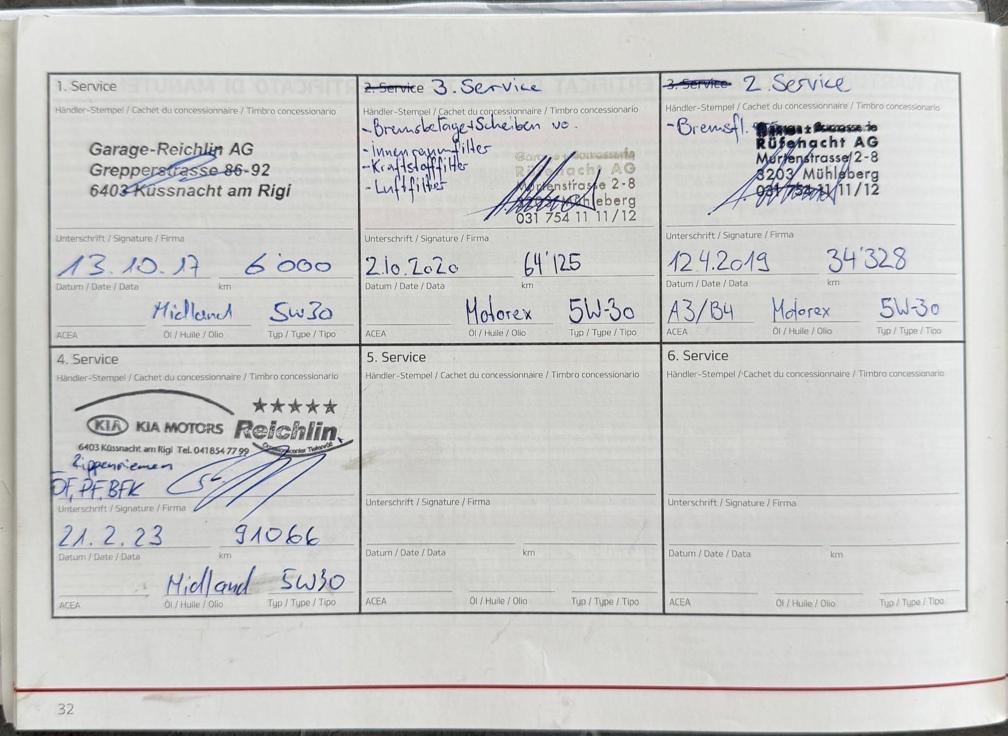 1. Service
Händler-Stempel / Cachet du concessionnaire / Timbro concessionario
Garage-Reichlin AG
Grepperstrasse 86-92
6403 Küssnacht am Rigi
Unterschrift / Signature / Firma
13.10.17 6'000
Datum / Date / Data km
Midland 5W30
ACEA Öl / Huile / Olio Typ / Type / Tipo
2. Service 3. Service
Händler-Stempel / Cachet du concessionnaire / Timbro concessionario
-Bremsbeläge+Scheiben vo.
-Innenraumfilter
-Kraftstofffilter
-Luftfilter
Rüfenacht AG
Murtenstrasse 2-8
3203 Mühleberg
031 754 11 11/12
Unterschrift / Signature / Firma
2.10.2020 64'125
Datum / Date / Data km
Motorex 5W-30
ACEA Öl / Huile / Olio Typ / Type / Tipo
3. Service 2. Service
Händler-Stempel / Cachet du concessionnaire / Timbro concessionario
-Bremsfl.
Rüfenacht AG
Murtenstrasse 2-8
3203 Mühleberg
031 754 11 11/12
Unterschrift / Signature / Firma
12.4.2019 34'328
Datum / Date / Data km
A3/B4 Motorex 5W-30
ACEA Öl / Huile / Olio Typ / Type / Tipo
4. Service
Händler-Stempel / Cachet du concessionnaire / Timbro concessionario
KIA KIA MOTORS Reichlin
6403 Küssnacht am Rigi Tel. 041 854 77 99
Rippenriemen
ÖF, PF, BFK
Unterschrift / Signature / Firma
21.2.23 91066
Datum / Date / Data km
Midland 5W30
ACEA Öl / Huile / Olio Typ / Type / Tipo
5. Service
Händler-Stempel / Cachet du concessionnaire / Timbro concessionario
Unterschrift / Signature / Firma
Datum / Date / Data km
ACEA Öl / Huile / Olio Typ / Type / Tipo
6. Service
Händler-Stempel / Cachet du concessionnaire / Timbro concessionario
Unterschrift / Signature / Firma
Datum / Date / Data km
ACEA Öl / Huile / Olio Typ / Type / Tipo
32